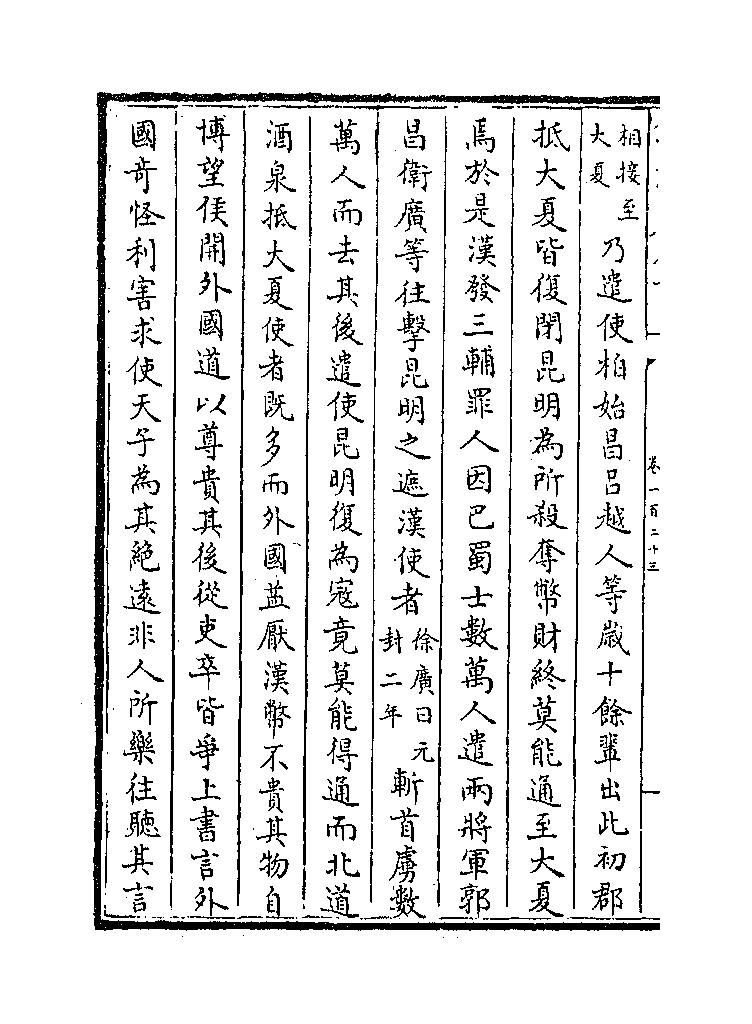 相接至
大夏
乃遣使柏始昌吕越人等歲十餘軰出此初郡
抵大夏皆復閉昆明為所殺奪幣財終莫能通至大夏
焉於是漢發三輔罪人因巴蜀士數萬人遣兩將軍郭
昌衛廣等往擊昆明之遮漢使者
徐廣曰元
封二年
斬首虜數
萬人而去其後遣使昆明復為宼竟莫能得通而北道
酒泉抵大夏使者既多而外國益厭漢幣不貴其物自
博望侯開外國道以尊貴其後從吏卒皆爭上書言外
國奇怪利害求使天子為其絶遠非人所樂往聽其言
卷一百二十三